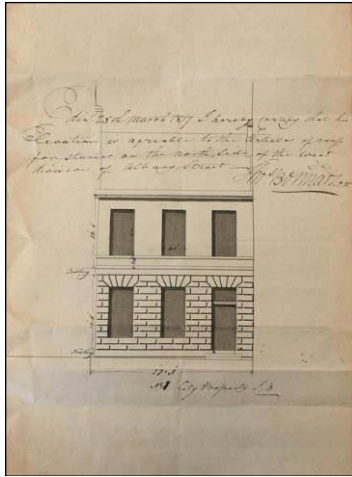 Edin 25th March 1817 I hereby certify that this
Elevation is agreeable to the Articles of roup
for stances on the north side of the west
division of Albany Street
Thos Bonnar
Flooring
Flooring
27.3
No 1 City Property